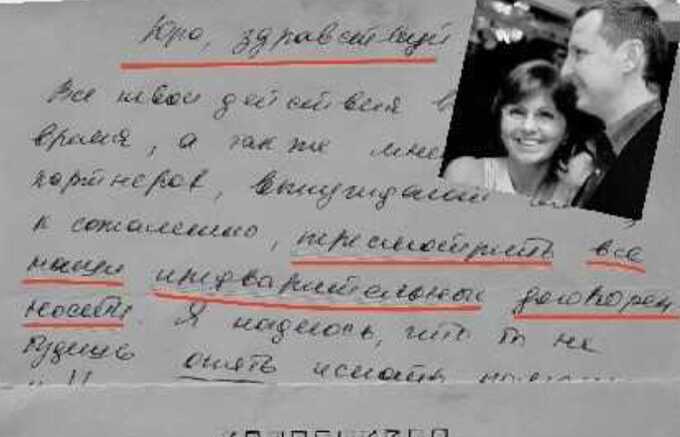 Юра, здравствуй
Все твои действия в
время, а также мне
партнеров, вынуждают
к сожалению, пересмотреть все
наши предварительные договорен
ности. Я надеюсь, что ты не
будешь опять искать